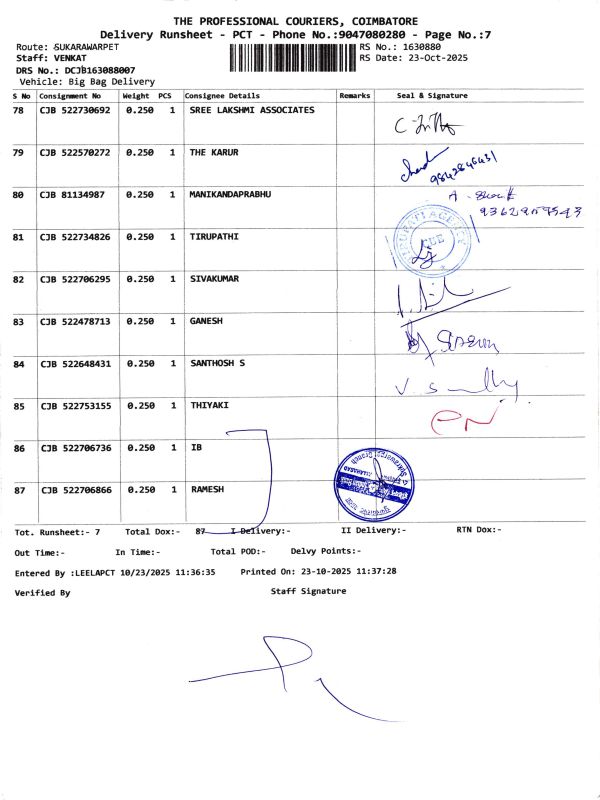 THE PROFESSIONAL COURIERS, COIMBATORE
Delivery Runsheet - PCT - Phone No.:9047080280 - Page No.:7
Route: SUKARAWARPET
RS No.: 1630880
Staff: VENKAT
RS Date: 23-Oct-2025
DRS No.: DCJB163088007
Vehicle: Big Bag Delivery
S No Consignment No Weight PCS Consignee Details Remarks Seal & Signature
78 CJB 522730692 0.250 1 SREE LAKSHMI ASSOCIATES
79 CJB 522570272 0.250 1 THE KARUR
9842846431
80 CJB 81134987 0.250 1 MANIKANDAPRABHU
81 CJB 522734826 0.250 1 TIRUPATHI
TIRUPATI AGENCY
CBE
82 CJB 522706295 0.250 1 SIVAKUMAR
83 CJB 522478713 0.250 1 GANESH
84 CJB 522648431 0.250 1 SANTHOSH S
85 CJB 522753155 0.250 1 THIYAKI
86 CJB 522706736 0.250 1 IB
87 CJB 522706866 0.250 1 RAMESH
Tot. Runsheet:- 7 Total Dox:- 87 I Delivery:- II Delivery:- RTN Dox:-
Out Time:- In Time:- Total POD:- Delvy Points:-
Entered By :LEELAPCT 10/23/2025 11:36:35 Printed On: 23-10-2025 11:37:28
Verified By Staff Signature